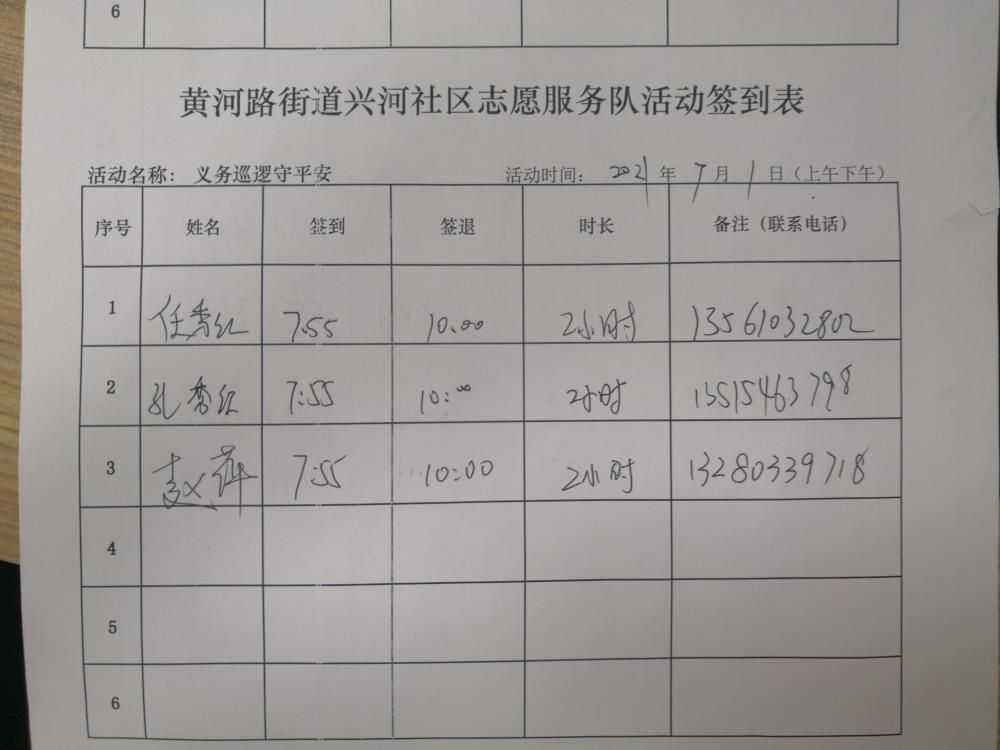 6
黄河路街道兴河社区志愿服务队活动签到表
活动名称： 义务巡逻守平安 活动时间： 2021 年 7 月 1 日（上午下午）
序号 姓名 签到 签退 时长 备注（联系电话）
1 任秀红 7.55 10.00 2小时 13561032802
2 孔秀红 7:55 10:00 2小时 13515463798
3 赵萍 7:55 10:00 2小时 13280339718
4
5
6